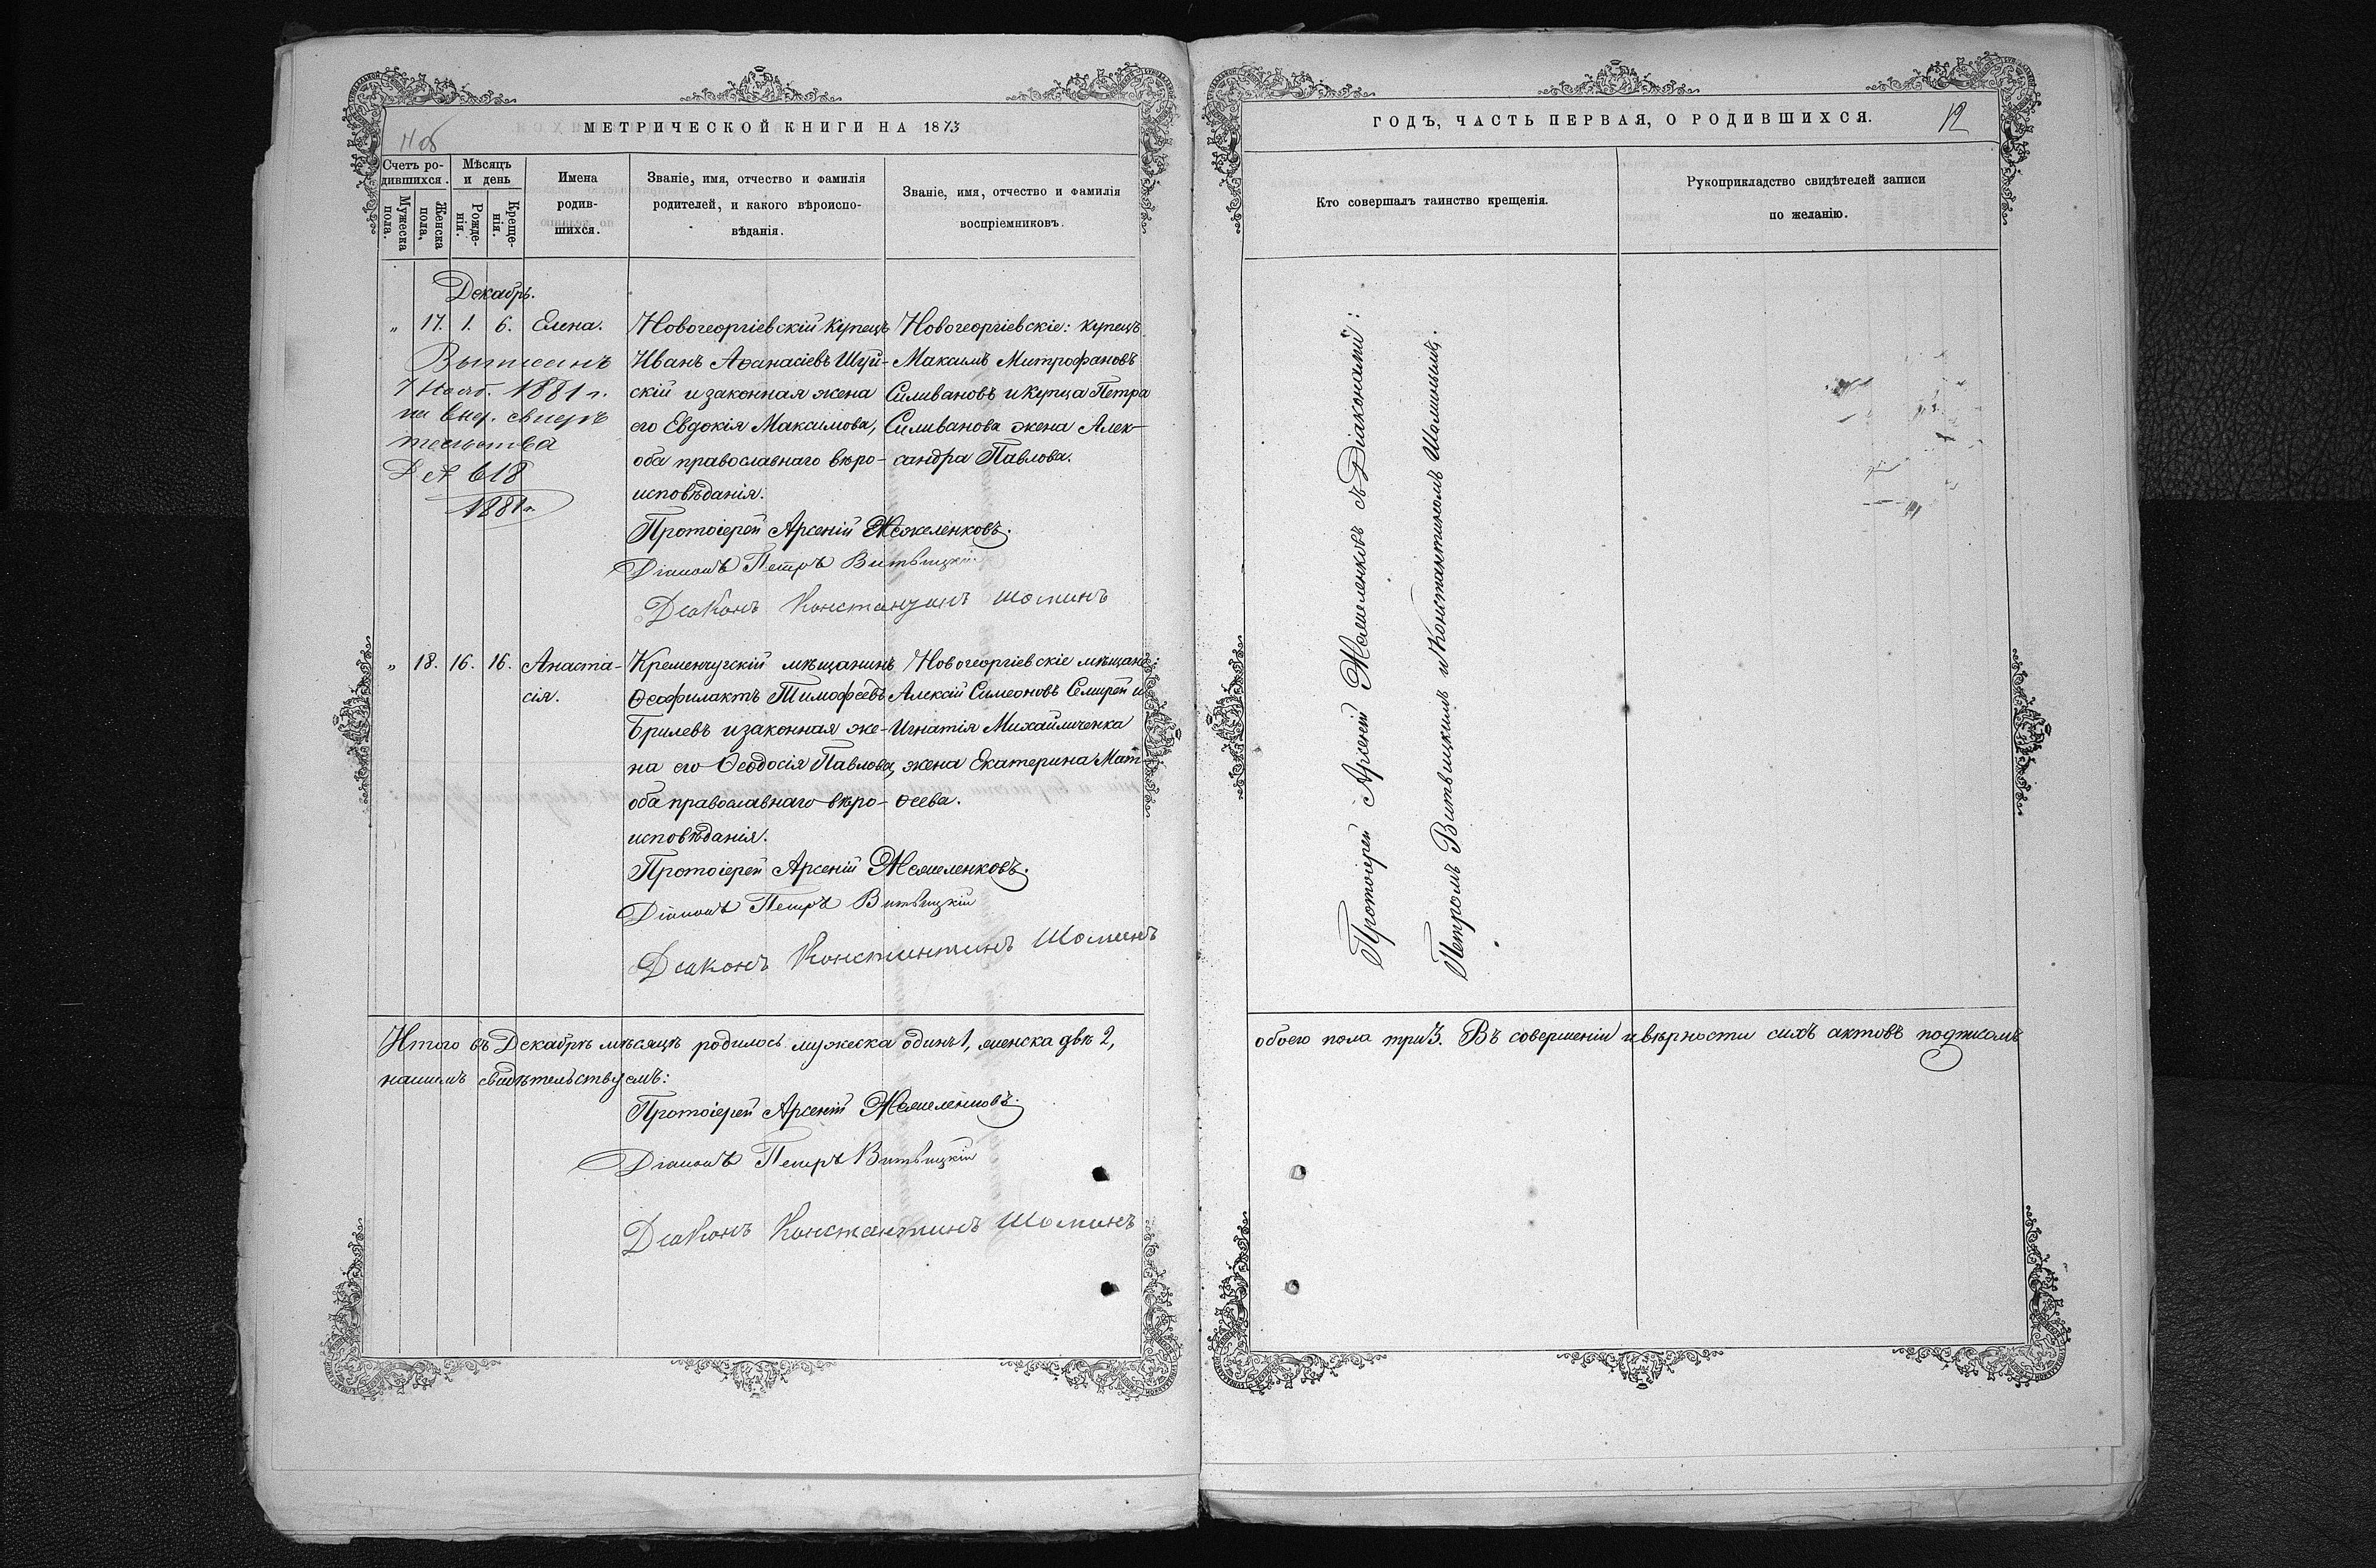 МЕТРИЧЕСКОЙ КНИГИ НА 1873
Счетъ ро-
дившихся.
Мужеска
пола.
Женска
пола,
Мѣсяцъ
и день
Рожде-
нія.
Креще-
нія.
Имена
родив-
шихся.
Званіе, имя, отчество и фамилія
родителей, и какого вѣроиспо-
вѣданія.
Званіе, имя, отчество и фамилія
воспріемниковъ.
Декабрь.
„ 17. 1. 6. Елена.
7 1881 г.
618
1881 г.
Новогеоргіевскій купецъ
Иванъ Аѳанасіевъ Шуй-
скій и законная жена
его Евдокія Максимова,
оба православнаго вѣро-
исповѣданія.
Новогеоргіевскіе: купецъ
Максимъ Митрофановъ
Силивановъ и купца Петра
Силиванова жена Алек-
сандра Павлова.
Протоіерей Арсеній Жежеленковъ.
Діаконъ Петръ Витвицкій
Діаконъ Константинъ Шоминъ
„ 18. 16. 16. Анаста-
сія.
Кременчугскій мѣщанинъ
Ѳеофилактъ Тимофеевъ
Брилевъ и законная же-
на его Ѳеодосія Павлова,
оба православнаго вѣро-
исповѣданія.
Новогеоргіевскіе мѣщане:
Алексій Симеоновъ Семирей и
Игнатія Михайличенка
жена Екатерина Мат-
ѳеева.
Протоіерей Арсеній Жежеленковъ.
Діаконъ Петръ Витвицкій
Діаконъ Константинъ Шоминъ
Итого въ Декабрѣ мѣсяцѣ родилось мужеска одинъ 1, женска двѣ 2,
нашимъ свидѣтельствуемъ:
Протоіерей Арсеній Жежеленковъ.
Діаконъ Петръ Витвицкій
Діаконъ Константинъ Шоминъ
ГОДЪ, ЧАСТЬ ПЕРВАЯ, О РОДИВШИХСЯ.
12
Кто совершалъ таинство крещенія.
Рукоприкладство свидѣтелей записи
по желанію.
Протоіерей Арсеній Жежеленковъ съ Діаконами:
Петромъ Витвицкимъ и Константиномъ Шоминымъ.
обоего пола три 3. Въ совершеніи и вѣрности сихъ актовъ подписомъ